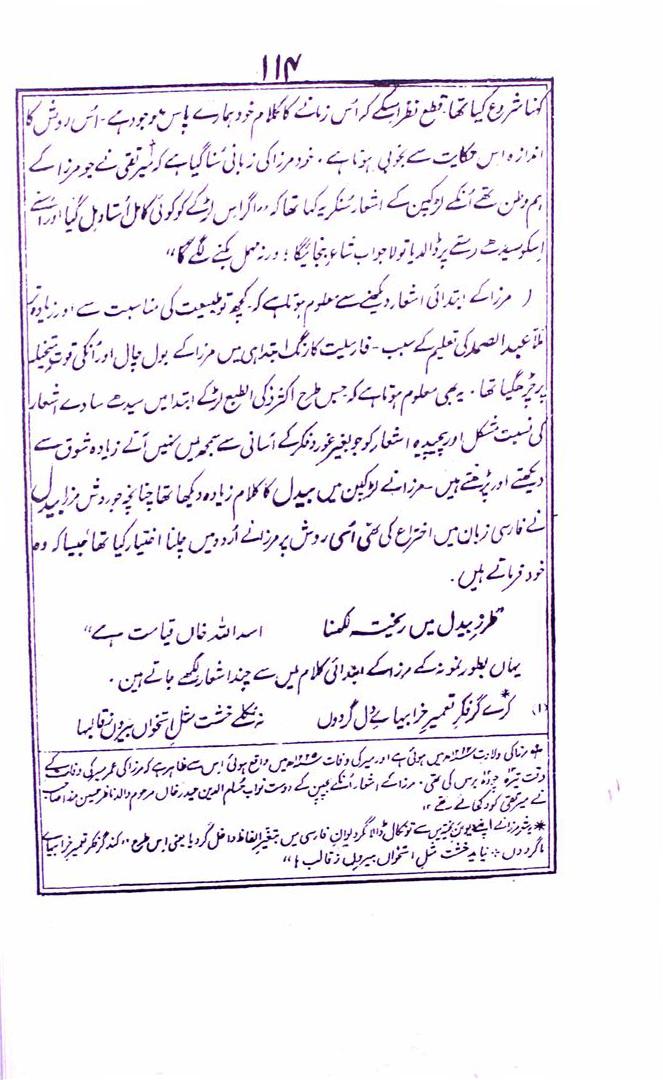 ۱۱۴
کہنا شروع کیا تھا۔ قطع نظر اسکے کہ اُس زمانے کا کلام خود ہمارے پاس موجود ہے۔ اُس روش کا
اندازہ اس حکایت سے بخوبی ہوتا ہے۔ خود مرزا کی زبانی سُنا گیا ہے کہ میر تقی نے جو مرزا کے
ہم وطن تھے اُنکے لڑکپن کے اشعار سُنکر یہ کہا تھا کہ "اگر اس لڑکے کو کوئی کامل اُستاد مل گیا اور اُسنے
اسکو سیدھے رستے پر ڈالدیا تو لاجواب شاعر بنجائیگا؛ ورنہ مہمل بکنے لگے گا"
مرزا کے ابتدائی اشعار دیکھنے سے معلوم ہوتا ہے کہ۔ کچھ تو طبیعت کی مناسبت سے اور زیادہ تر
ملّا عبد الصمد کی تعلیم کے سبب۔ فارسیت کا رنگ ابتدا ہی میں مرزا کے بول چال اور اُنکی قوتِ متخیلہ
پر چڑھ گیا تھا۔ یہ بھی معلوم ہوتا ہے کہ جس طرح اکثر ذکی الطبع لڑکے ابتدا میں سیدھے سادے اشعار
کی نسبت مشکل اور پیچیدہ اشعار کو جو بغیر غور و فکر کے آسانی سے سمجھ میں نہیں آتے زیادہ شوق سے
دیکھتے اور پڑھتے ہیں۔ مرزا نے لڑکپن میں بیدل کا کلام زیادہ دیکھا تھا چنانچہ جو روش مرزا بیدل
نے فارسی زبان میں اختراع کی تھی اُسی روش پر مرزا نے اُردو میں چلنا اختیار کیا تھا جیسا کہ وہ
خود فرماتے ہیں۔
"طرز بیدل میں ریختہ لکھنا اسد اللہ خاں قیامت ہے"
یہاں بطور نمونہ کے مرزا کے ابتدائی کلام میں سے چند اشعار لکھے جاتے ہین۔
(۱) کرے گر فکر تعمیرِ خرابیہاے دل گردوں * نہ نکلے خشت مثلِ استخواں بیرون ز قالبہا
+ مرزا کی ولادت ۱۲۱۲ھ میں ہوئی ہے اور میر کی وفات ۱۲۲۵ھ میں واقع ہوئی اس سے ظاہر ہے کہ مرزا کی عمر میر کی وفات کے
وقت تیرہ چودہ برس کی تھی۔ مرزا کے اشعار اُنکے بچپن کے دوست نواب حسام الدین حیدر خاں مرحوم والد ناظر حسین مرزا صاحب
نے میر تقی کو دکھائے تھے ۱۲
* یہ شعر مرزا نے اپنے دیوانِ ریختہ میں سے تو نکال ڈالا مگر دیوانِ فارسی میں بتغیرِ الفاظ داخل کر دیا یعنی اس طرح "کند گر فکر تعمیرِ خرابیہاے
ما گردوں * نیاید خشت مثلِ استخواں بیروں ز قالب ہا"